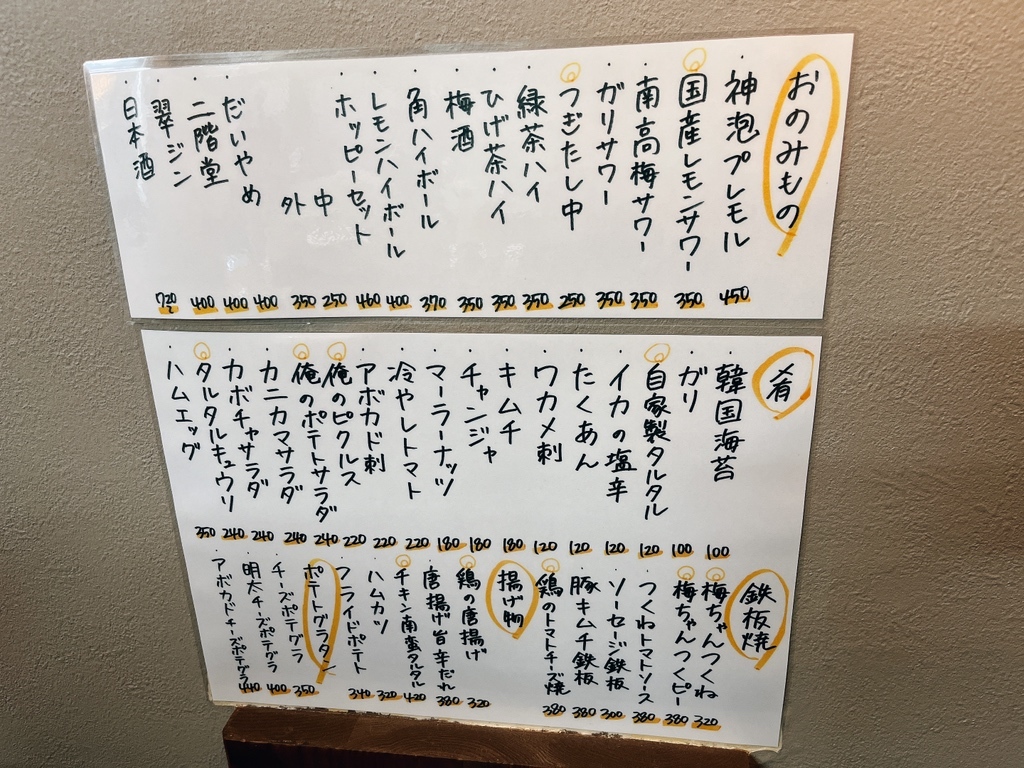 おのみもの
神泡プレモル 450
国産レモンサワー 350
南高梅サワー 350
ガリサワー 350
つぎたし中 250
緑茶ハイ 350
ひげ茶ハイ 350
梅酒 350
角ハイボール 370
レモンハイボール 400
ホッピーセット 460
中 250
外 350
だいやめ 400
二階堂 400
翠ジン 400
日本酒 720〜
肴
韓国海苔 100
ガリ 100
自家製タルタル 120
イカの塩辛 120
たくあん 120
ワカメ刺 120
キムチ 180
チャンジャ 180
マーラーナッツ 180
冷やしトマト 220
アボカド刺 220
俺のピクルス 220
俺のポテトサラダ 240
カニカマサラダ 240
カボチャサラダ 240
タルタルキュウリ 240
ハムエッグ 350
鉄板焼
梅ちゃんつくね 320
梅ちゃんつくピー 380
つくねトマトソース 380
ソーセージ鉄板 300
豚キムチ鉄板 380
鶏のトマトチーズ焼 380
揚げ物
鶏の唐揚げ 320
唐揚げ旨辛だれ 380
チキン南蛮タルタル 420
ハムカツ 320
フライドポテト 340
ポテトグラタン
チーズポテグラ 350
明太チーズポテグラ 400
アボカドチーズポテグラ 440